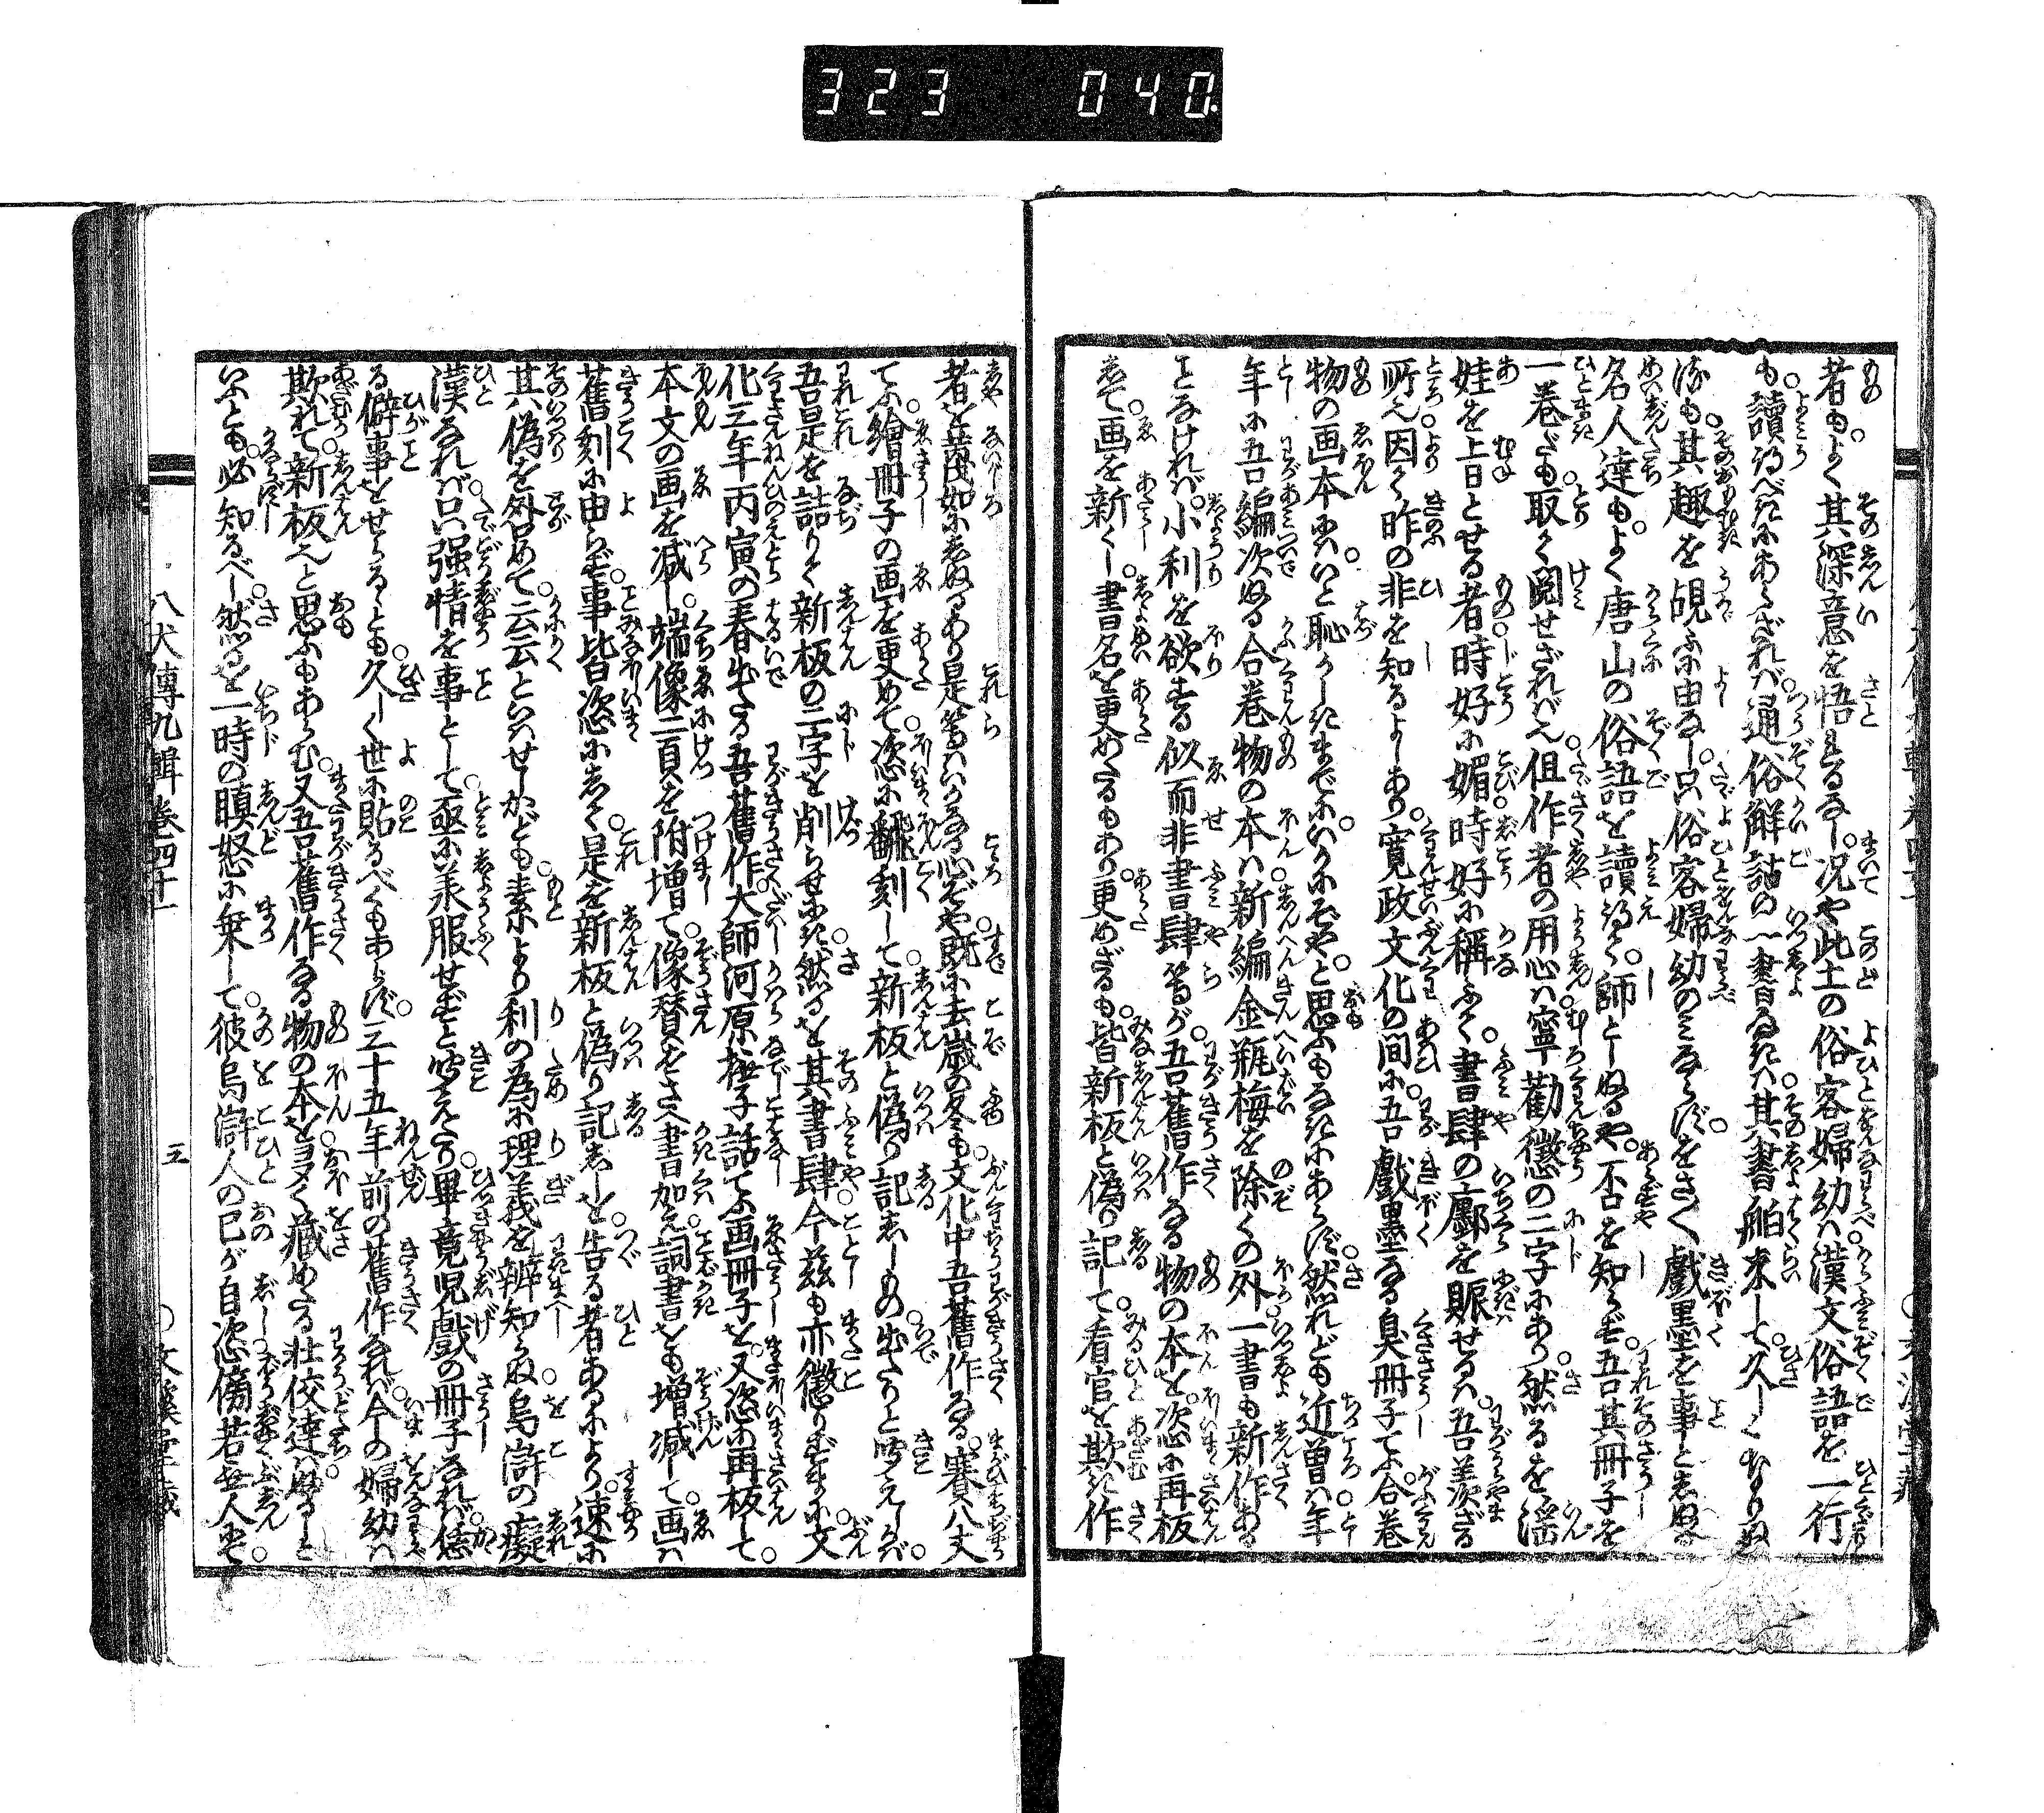 323 040
者も。よく其深意を悟るゝなし。况や此土の俗客婦幼ハ。漢文俗語を一行
も。讀得べきにあらざれバ。通俗觧詁の一書なきハ。其書舶來して。久しくなりぬ
れども。其趣を覘ふに由なし。只俗客婦幼のミならず。をさ〳〵戲墨を事としぬる
名人達も。よく唐山の俗語を讀得て。師としぬるや。否を知らず。吾其冊子を
一巻だも。取て閲せざれバ也。但作者の用心ハ。寧勸懲の二字にあり。然るを淫
娃を上日とせる者。時好に媚。時好に稱ふて。書肆の廓を賑せるハ。吾羨ざる
所也。因て昨の非を知るよしあり。寛政文化の間に。吾戲墨なる臭冊子てふ。合巻
物の画本にハ。いと恥かしきまでに。いかにぞや。と思ふもなきにあらず。然れども近曽ハ。年
年に吾編次ぬる。合巻物の本ハ。新編金瓶梅を除くの外。一書も新作ある
ことなけれバ。小利を欲する似而非書肆等が。吾舊作なる物の本を。恣に再板
して。画を新くし。書名を更めたるもあり。更めざるも。皆新板と偽り記して。看官を欺き。作
者を蔑如にしぬるあり。是等ハいかなる心ぞや。既に去歳の冬も。文化中吾舊作なる。賽八丈
てふ。繪冊子の画を更めて。恣に飜刻して。新板と偽り記しゝもの。出たりと聞えしかバ。
吾是を詰りて。新板の二字を削らせにき。然るを其書肆。今茲も亦懲りずまに。文
化三年丙寅の春。出たる吾舊作。大師河原撫子話てふ画冊子を。又恣に再板して。
本文の画を減し。端像二頁を附増して。像賛をさへ書加え。詞書をも増減して。画ハ
舊刻に由らず。事皆恣にして。是を新板と偽り記しゝを。告る者あるにより。速に
其偽を咎めて。云云といはせしかども。素より利の為に理義を辨知らぬ。烏滸の癡
漢なれバ。只强情を事として。亟に羕服せずと聞えたり。畢竟児戲の冊子なれバ。恁
る僻事をせらるゝとも。久しく世に貽るべくもあらず。三十五年前の舊作なれバ。今の婦幼ハ
欺れて。新板也と思ふもあらむ。又吾舊作なる物の本を。多く藏めたる。壮佼達ハ。
いふとも。必知るべし。然るを一時の瞋怒に乗して。彼烏滸人の己が自恣。傍若無人にて
八犬傳九輯巻四十一
三
○文溪堂藏